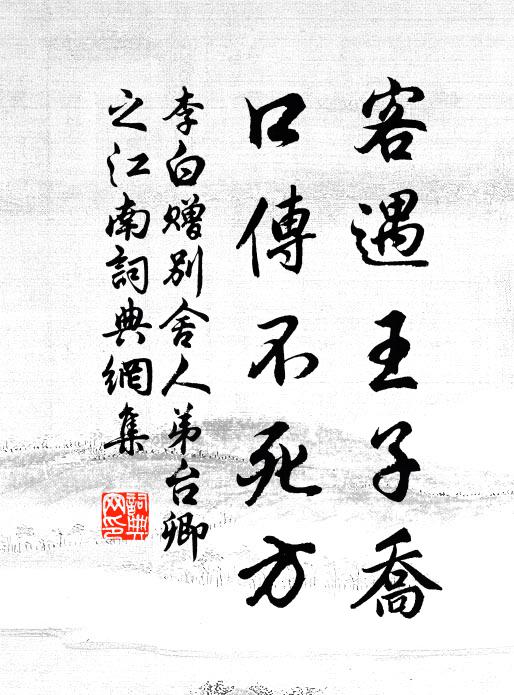 客遇王子喬
口傳不死方
李白贈別舍人弟台卿
之江南詞典網集
詞典
网印